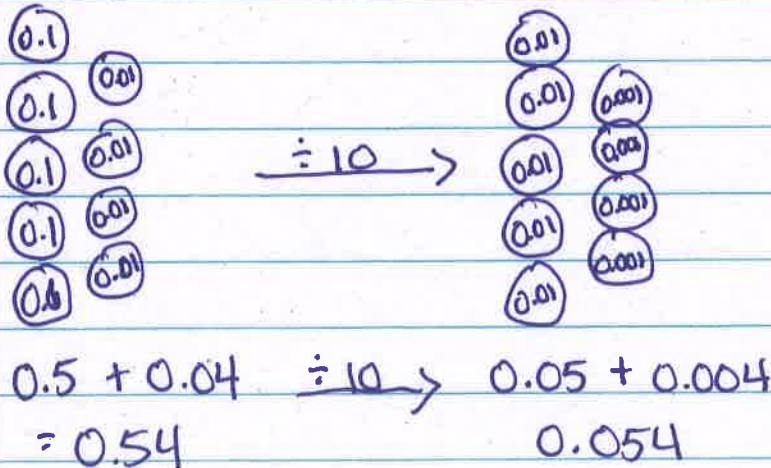 0.1 0.01
0.01
0.1 0.01 0.001
0.1 0.01 ÷ 10 0.01 0.001
0.1 0.01 0.01 0.001
0.01 0.01 0.001
0.5 + 0.04 ÷ 10 0.05 + 0.004
= 0.54 0.054